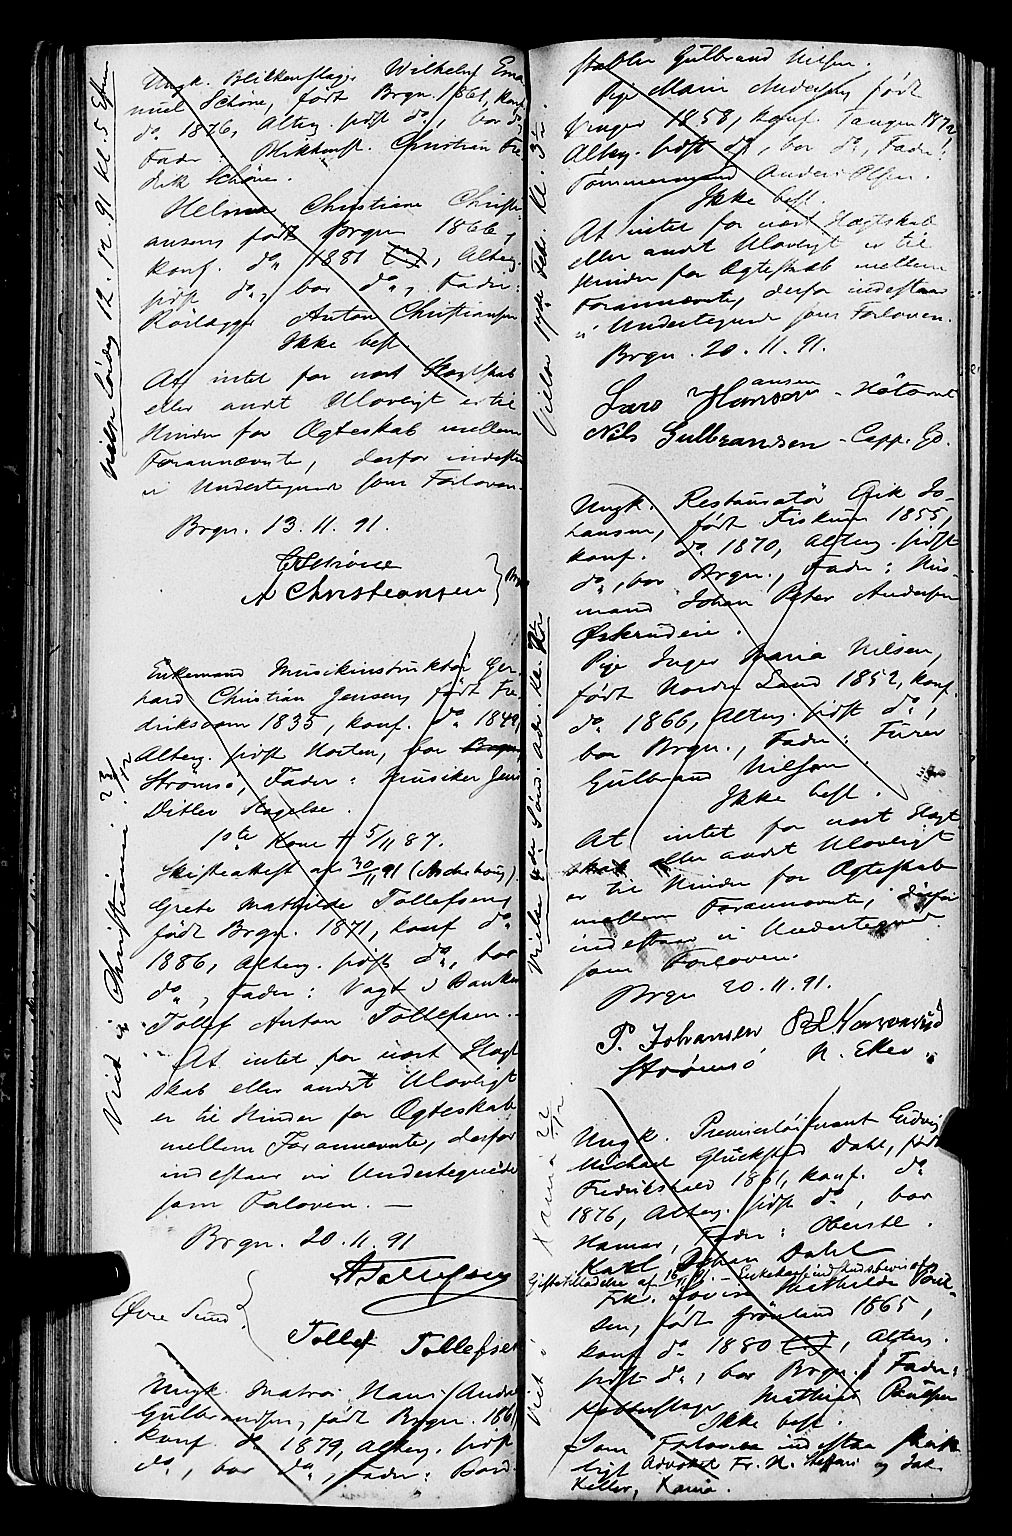 Vielse Lørdag 12.12.91 Kl. 5 Efterm
Ungk. Blikkenslager Wilhelm Ema
nuel Schöne, født Brgn. 1861, konf.
do 1876, Alterg. sidst do, bor do,
Fader: Blikkensl. Christian Fre
drik Schöne.
Helma Christiane Christi
ansen, født Brgn 1866,
konf. do 1881, Alterg.
sidst do, bor do, Fader:
Anton Christiansen
Ikke besl.
At intet for vort Slægtskab
eller andet Ulovligt er til
Hinder for Ægteskab mellem
Forannævnte, derfor indestaa
vi Undertegnede som Forlovere.
Brgn. 13.11.91.
C Schöne
A Christeansen } Brgn
Viet i Christiania 23/12
Enkemand Musikinstruktør Ger-
hard Christian Jensen, født Fre
driksværn 1835, konf. do 1849,
Alterg. sidst Horten, bor Brgn,
Strømsø, Fader: Musiker Jens
Ditlev Slagelse.
1ste Kone † 5/11 87.
Skifteattest af 30/11 91
Grete Mathilde Tollefsen,
født Brgn. 1871, konf do
1886, Alterg. sidst do, bor
do, Fader: Vagt i Banken
Tollef Anton Tollefsen.
At intet for vort Slægt
skab eller andet Ulovligt
er til Hinder for Ægteskab
mellem Forannævnte, derfor
indestaar vi Undertegnede
som Forlovere. —
Brgn. 20.11.91
A Tollefsen
Øvre Sund.
Tollef Tollefsen
Ungk. Matros Hans Andr.
Gulbrandsen, født Brgn. 1861
konf. do 1879, Alterg. sidst
do, bor do, Fader: Bord-
stabler Gulbrand Nilsen.
Pige Marie Andersen, født
Vinger 1858, konf. Tangen 1872
Alterg. sidst do, bor do, Fader:
Tømmermand Anders Olsen.
Ikke besl.
At intet for vort Slægtskab
eller andet Ulovligt er til
Hinder for Ægteskab mellem
Forannævnte, derfor indestaar
vi Undertegnede som Forlovere.
Brgn. 20.11.91.
Lars Hansen
Nils Gulbrandsen - Capp. Gd.
Ungk. Restauratør Erik Jo-
hansen, født Fiskum 1855,
konf. do 1870, Alterg. sidst
do, bor Brgn., Fader: Hus-
mand Johan Peter Andersen
Pige Inger Maria Nilsen,
født Nordre Land 1852, konf.
do 1866, Alterg. sidst do,
bor Brgn., Fader:
Gulbrand Nilsen
Ikke besl.
At intet for vort Slægt
skab eller andet Ulovligt
er til Hinder for Ægteskab
mellem Forannævnte, derfor
indestaar vi Undertegnede
som Forlovere.
Brgn 20.11.91.
P. Johansen
Strømsö N. Eker.
Ungk. Premierløitnant Ludvig
Michael Glückstad Dahl, født
Fredrikshald 1861, konf. do
1876, Alterg. sidst do, bor
Hamar, Fader: Oberstl.
Karl Johan Dahl
Giftetilladelse af
Frk. Lovise Mathilde Poul-
sen, født Grönland 1865,
konf. do 1880, Alterg.
sidst do, bor Brgn., Fader:
Kobberslager Mathias Poulsen
Ikke besl.
Som Forlovere indestaa
Advokat Fr. H.
Keller, Xania.